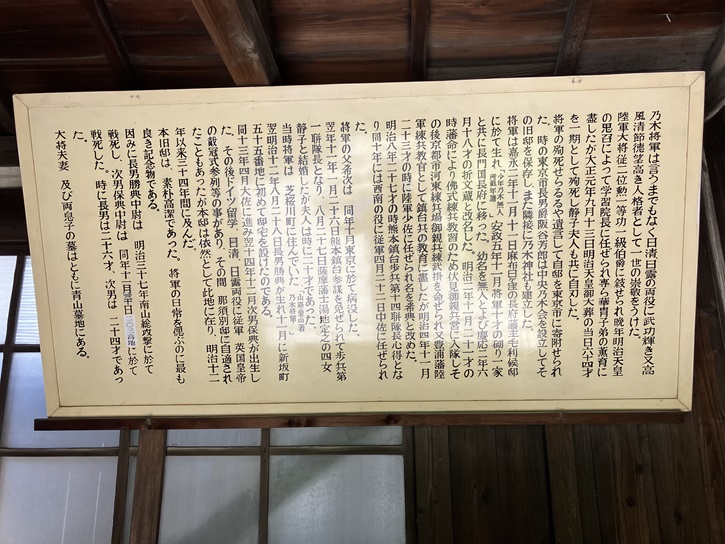 乃木将軍は言うまでもなく日清日露の両役に武功輝き又高
風清節徳望高き人格者として一世の崇敬をうけた。
陸軍大将従二位勲一等功一級伯爵に敍せられ晩年明治天皇
の思召によって学習院長に任ぜられ専ら華冑子弟の薫育に
盡したが大正元年九月十三日明治天皇御大葬の当日六十四才
を一期として殉死し静子夫人も共に自刃した。
将軍の殉死せらるるや遺言して自邸を東京市に寄附せられ
た。時の東京市長男爵阪谷芳郎は中央乃木会を設立してそ
の旧邸を保存しまた隣接に乃木神社も建立した。
将軍は嘉永二年十一月十一日麻布日ヶ窪の長府藩主毛利候邸
に於て生れ 安政五年十一月将軍十才の砌り一家
と共に長門国長府に移った。幼名を無人とよび慶応二年六
月十八才の折文蔵と改名した。明治二年十一月二十一才の
時藩命により佛式練兵教習のため伏見御親兵営に入隊しそ
の後京都市河東練兵場御親兵練武掛を命ぜられ又豊浦藩陸
軍練兵教官として鎮台兵の教育に盡したが明治四年十一月
二十三才の時に陸軍少佐に任ぜられ名を希典と改めた。
明治八年二十七才の時熊本鎮台歩兵第十四聯隊長心得とな
り同十年には西南の役に従軍四月二十二日中佐に任ぜられ
た。
将軍の父希次は 同年十月東京に於て病没した。
翌年十一年一月二十六日熊本鎮台参謀を免ぜられて歩兵第
一聯隊長となり、八月二十七日薩摩藩士湯地定之の四女
静子と結婚したが夫人は時に二十才であった。
当時将軍は 芝桜川町に住んでいた
翌明治十二年八月二十八日長男勝典が生れ十一月に新坂町
五十五番地に初めて邸宅を設けたのである。
同十三年四月大佐に進み翌十四年十二月次男保典が出生し
た。その後ドイツ留学、日清 日露両役に従軍 英国皇帝
の戴冠式参列等の事があり、その間 那須別邸に自適され
たこともあったが本邸は依然として此地に在り、明治十二
年以来三十四年間に及んだ
本旧邸は、素朴高潔であった。将軍の日常を偲ぶのに最も
良き記念物である。
因みに長男勝典中尉は 明治三十七年南山総攻撃に於て
戦死し、次男保典中尉は 同年十一月三十日二〇三高地に於て
戦死した。時に長男は二十六才、次男は 二十四才であっ
た。
大将夫妻 及び両息子の墓はともに青山墓地にある。